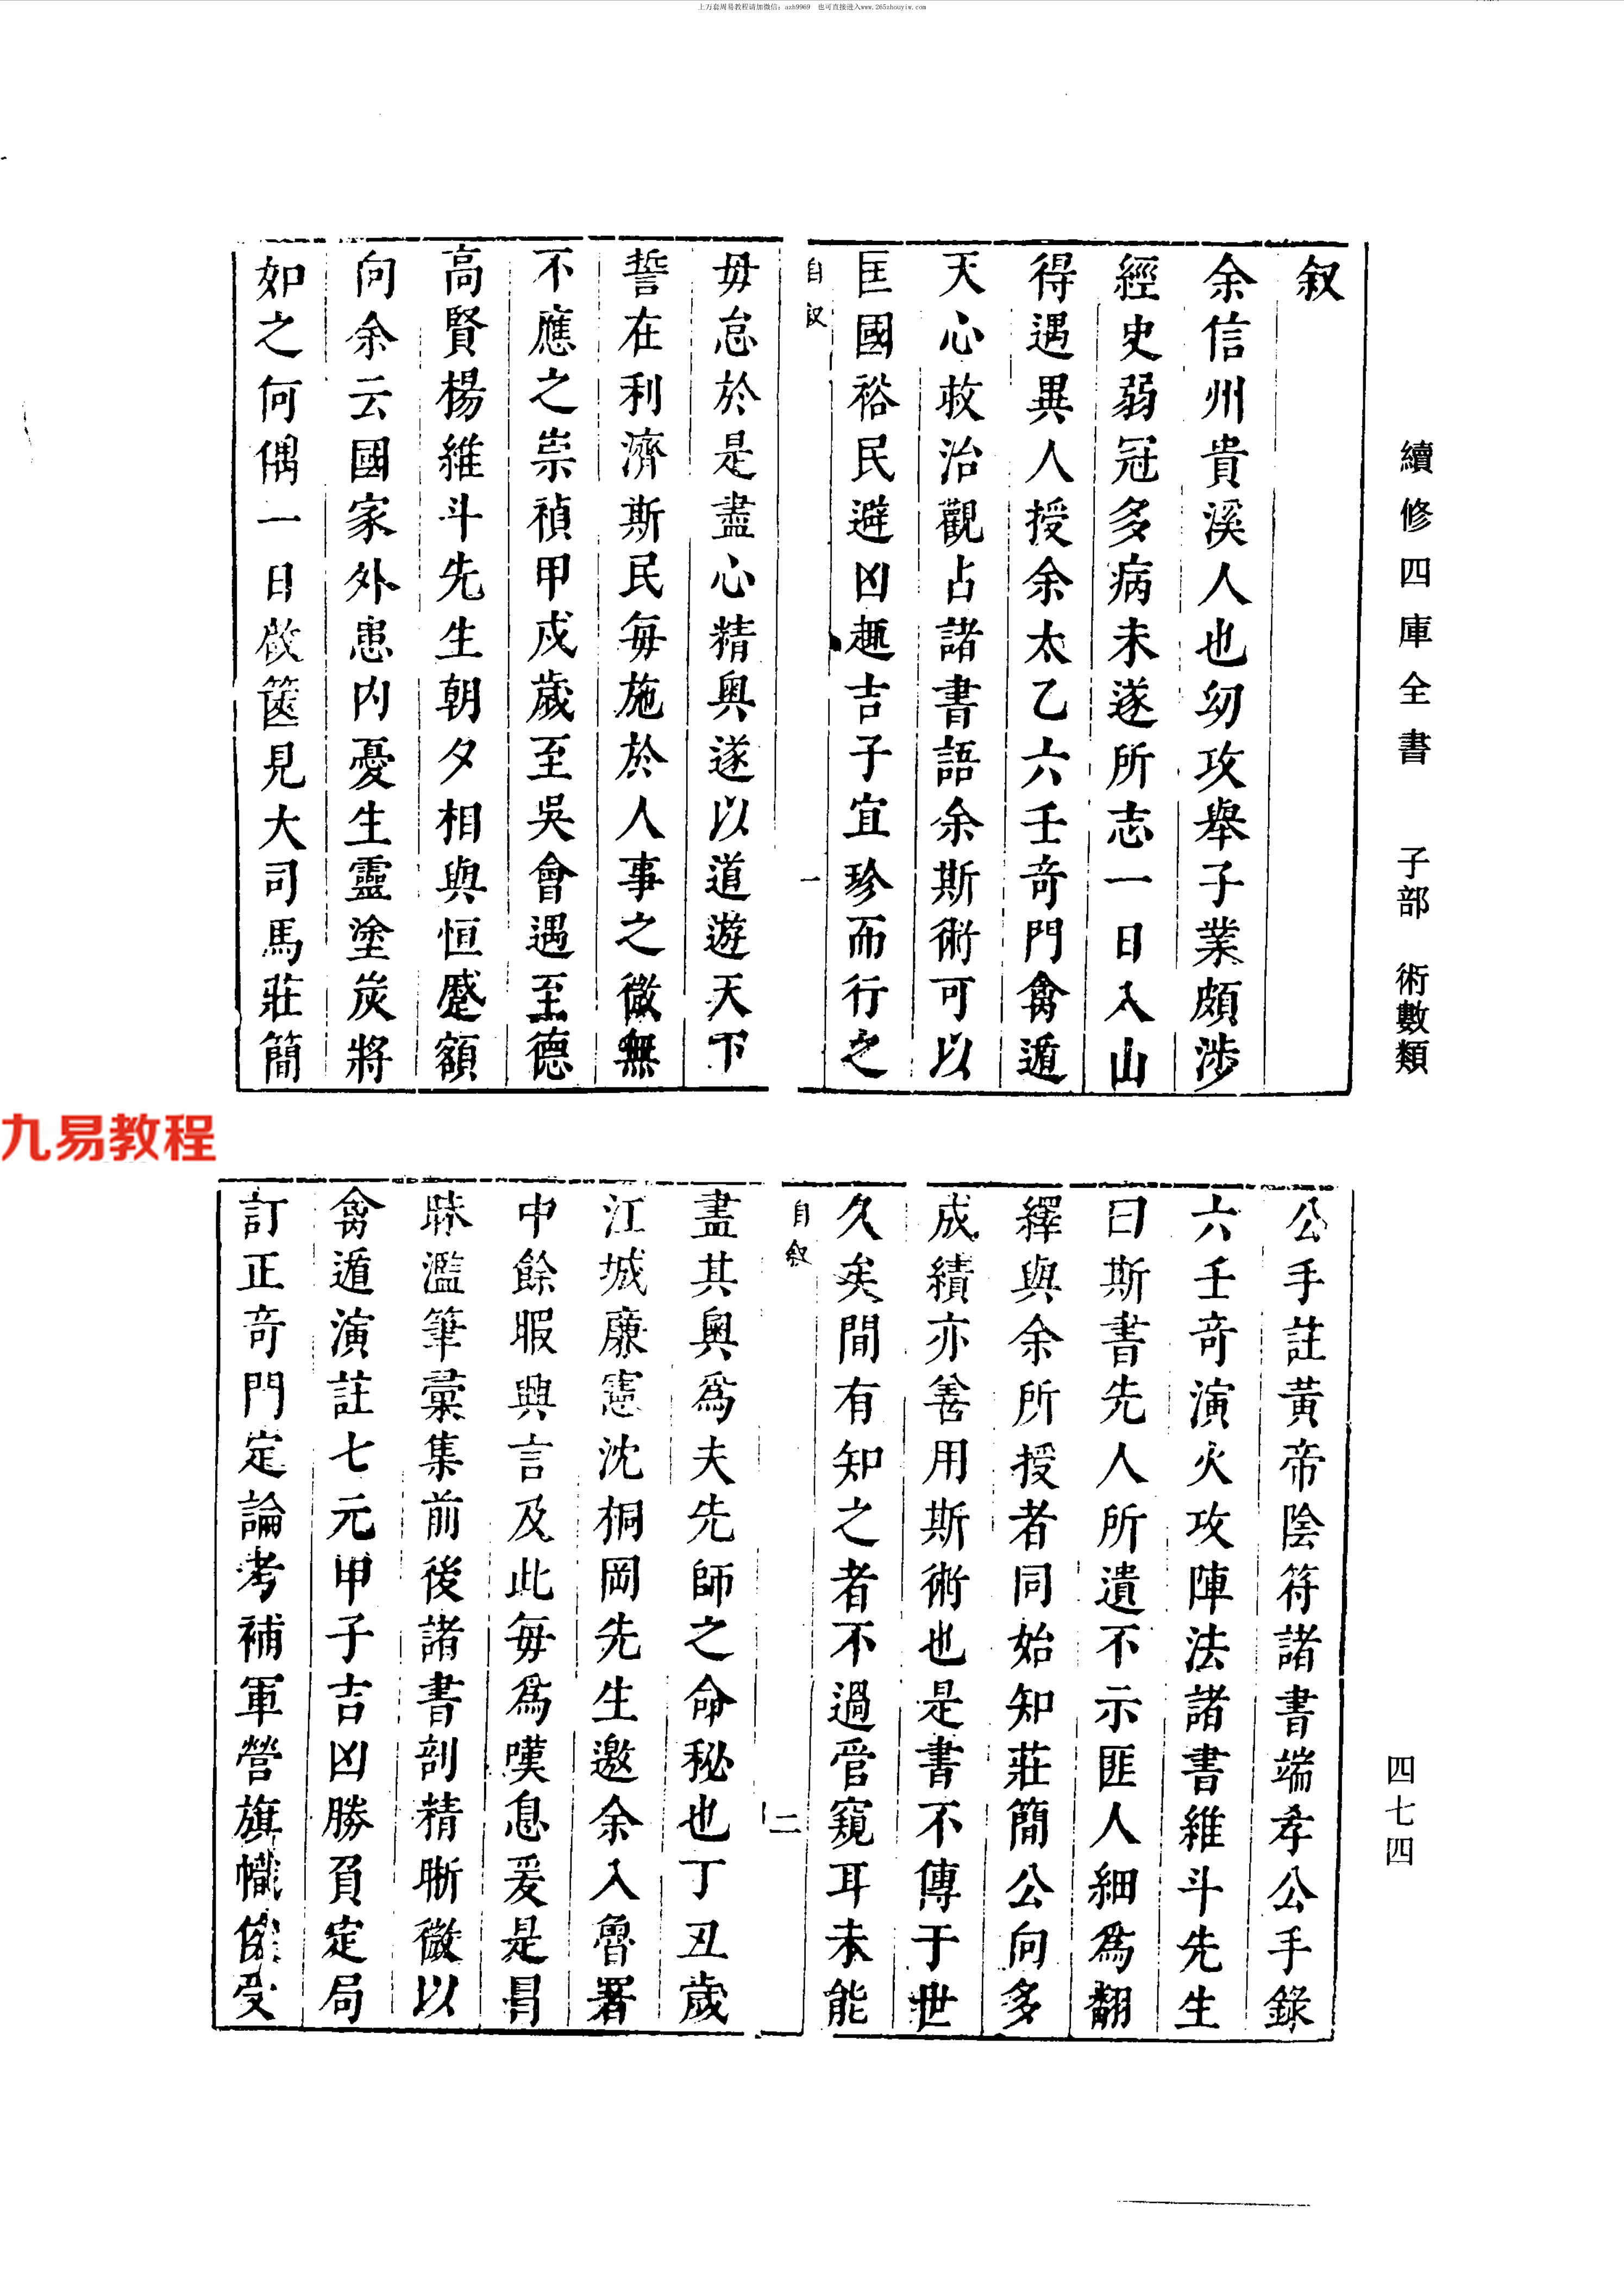 上万套周易教程请加微信：azh9969　也可直接进入www.265zhouyiw.com
續修四庫全書　子部　術數類
叙
余信州貴溪人也幼攻舉子業頗渉
經史弱冠多病未遂所志一日入山
得遇異人授余太乙六壬奇門禽遁
天心救治觀占諸書語余斯術可以
匡國裕民避凶趣吉子宜珍而行之
自叙
一
毋怠於是盡心精奥遂以道遊天下
誓在利濟斯民毎施於人事之微無
不應之崇禎甲戌歳至吳會遇至德
高賢楊維斗先生朝夕相與恒蹙額
向余云國家外患内憂生靈塗炭將
如之何偶一日啟篋見大司馬莊簡
九易教程
公手註黄帝陰符諸書端孝公手錄
六壬奇演火攻陣法諸書維斗先生
曰斯書先人所遺不示匪人細為翻
繹與余所授者同始知莊簡公向多
成績亦善用斯術也是書不傳于世
久矣間有知之者不過管窺耳未能
自叙
二
盡其奥爲夫先師之命秘也丁丑歳
江城廉憲沈桐岡先生邀余入魯署
中餘暇興言及此毎爲嘆息爰是冒
昧濫筆彙集前後諸書剖精晰微以
禽遁演註七元甲子吉凶勝負定局
訂正奇門定論考補軍營旗幟受
四七四